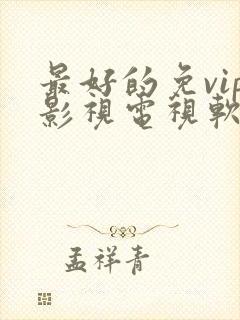 最好的免vip
影視電視軟
孟祥青